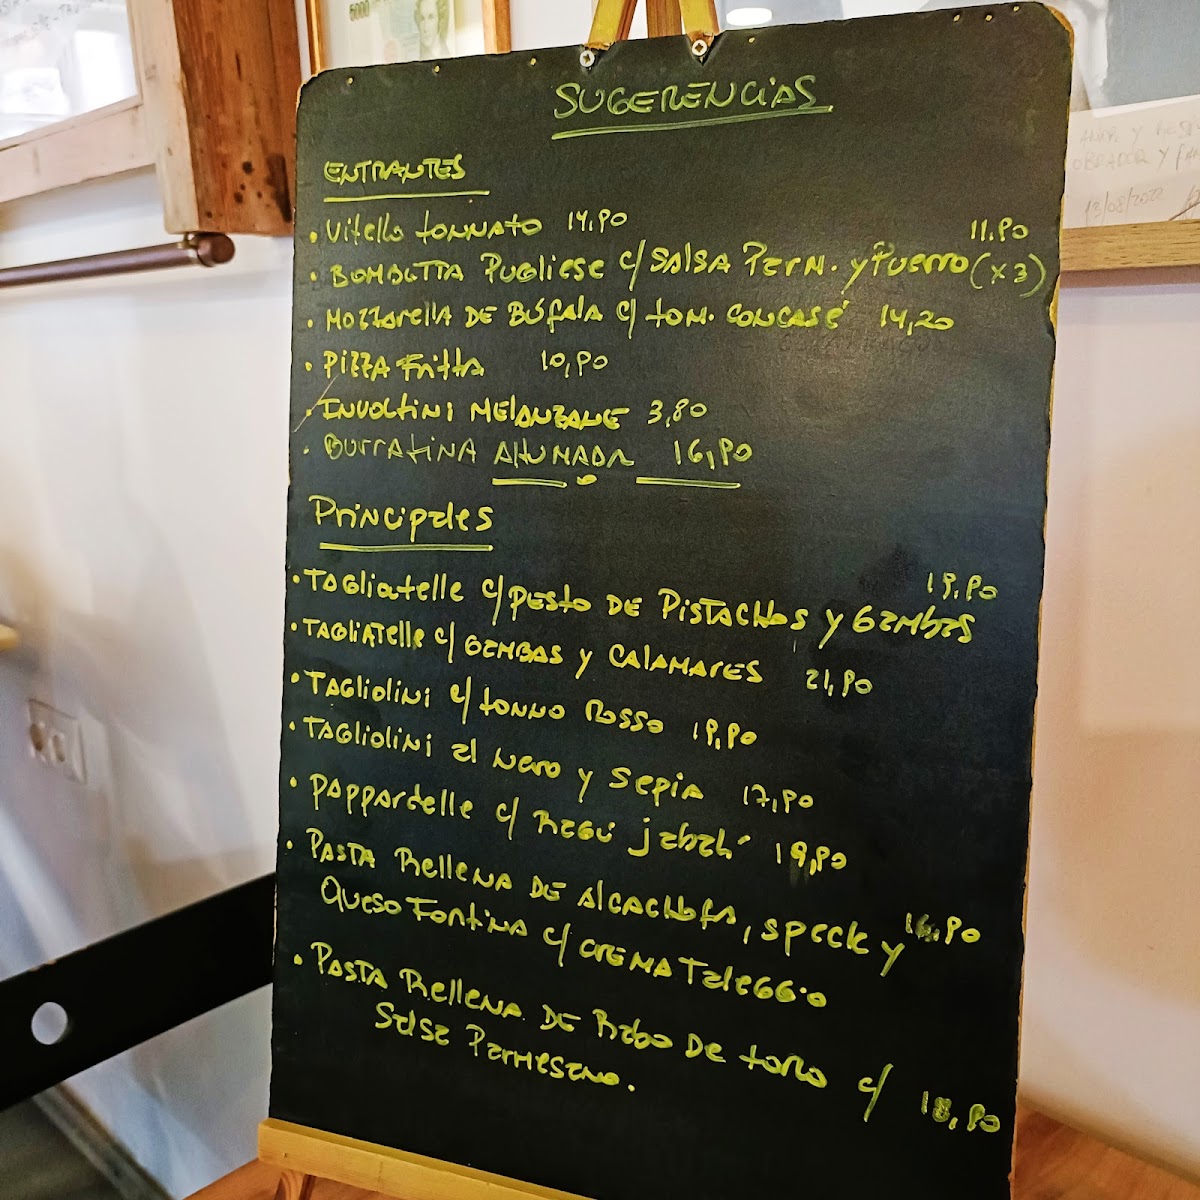 SUGERENCIAS
ENTRANTES
• Vitello tonnato 14,90
11.90
• BOMBETTA Pugliese c/ SALSA Parm. y Puerro (x3)
• Mozzarella DE Búfala c/ tom. concasé 14,20
• Pizza Fritta 10,90
• Involtini Melanzane 3,80
• Burratina AHUMADA 16,90
Principales
19,90
• Tagliatelle c/ pesto DE Pistachos y Gambas
• Tagliatelle c/ Gambas y Calamares 21,90
• Tagliolini c/ tonno rosso 19,90
• Tagliolini al nero y sepia 17,90
• Pappardelle c/ Ragú jabalí 19,90
• Pasta Rellena DE Alcachofa, speck y 16.90
Queso Fontina c/ crema Taleggio
• Pasta Rellena DE Rabo De toro c/ 18,90
Salsa Parmesano.
5000
OBRADOR Y
13/08/2022